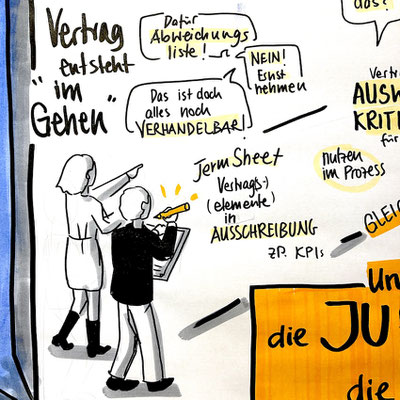 Vertrag
entsteht
"im
Gehen"
Dafür
Abweichungs
liste!
NEIN!
Ernst
nehmen
Das ist doch
alles noch
VERHANDELBAR!
das?
Vertr
AUSW
KRITE
für
nutzen
im Prozess
Term Sheet
Vertrags(-)
(elemente)
in
AUSSCHREIBUNG
zB. KPIs
GLEIC
Un
die JU
die